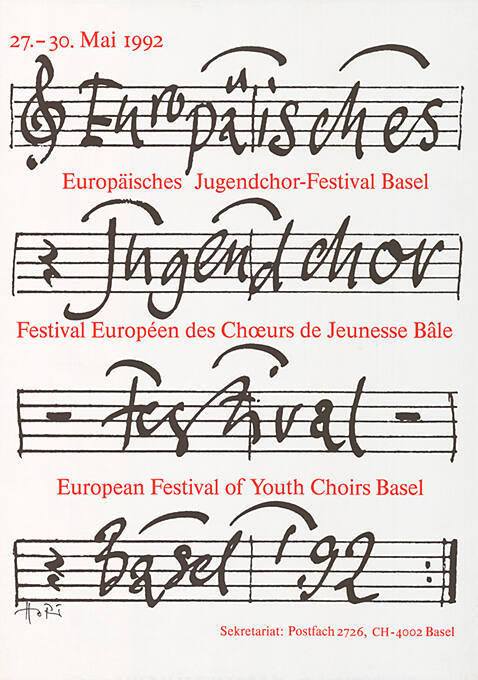 27.–30. Mai 1992
Europäisches
Europäisches Jugendchor-Festival Basel
Jugendchor
Festival Européen des Chœurs de Jeunesse Bâle
Festival
European Festival of Youth Choirs Basel
Basel '92
HoRi
Sekretariat: Postfach 2726, CH-4002 Basel